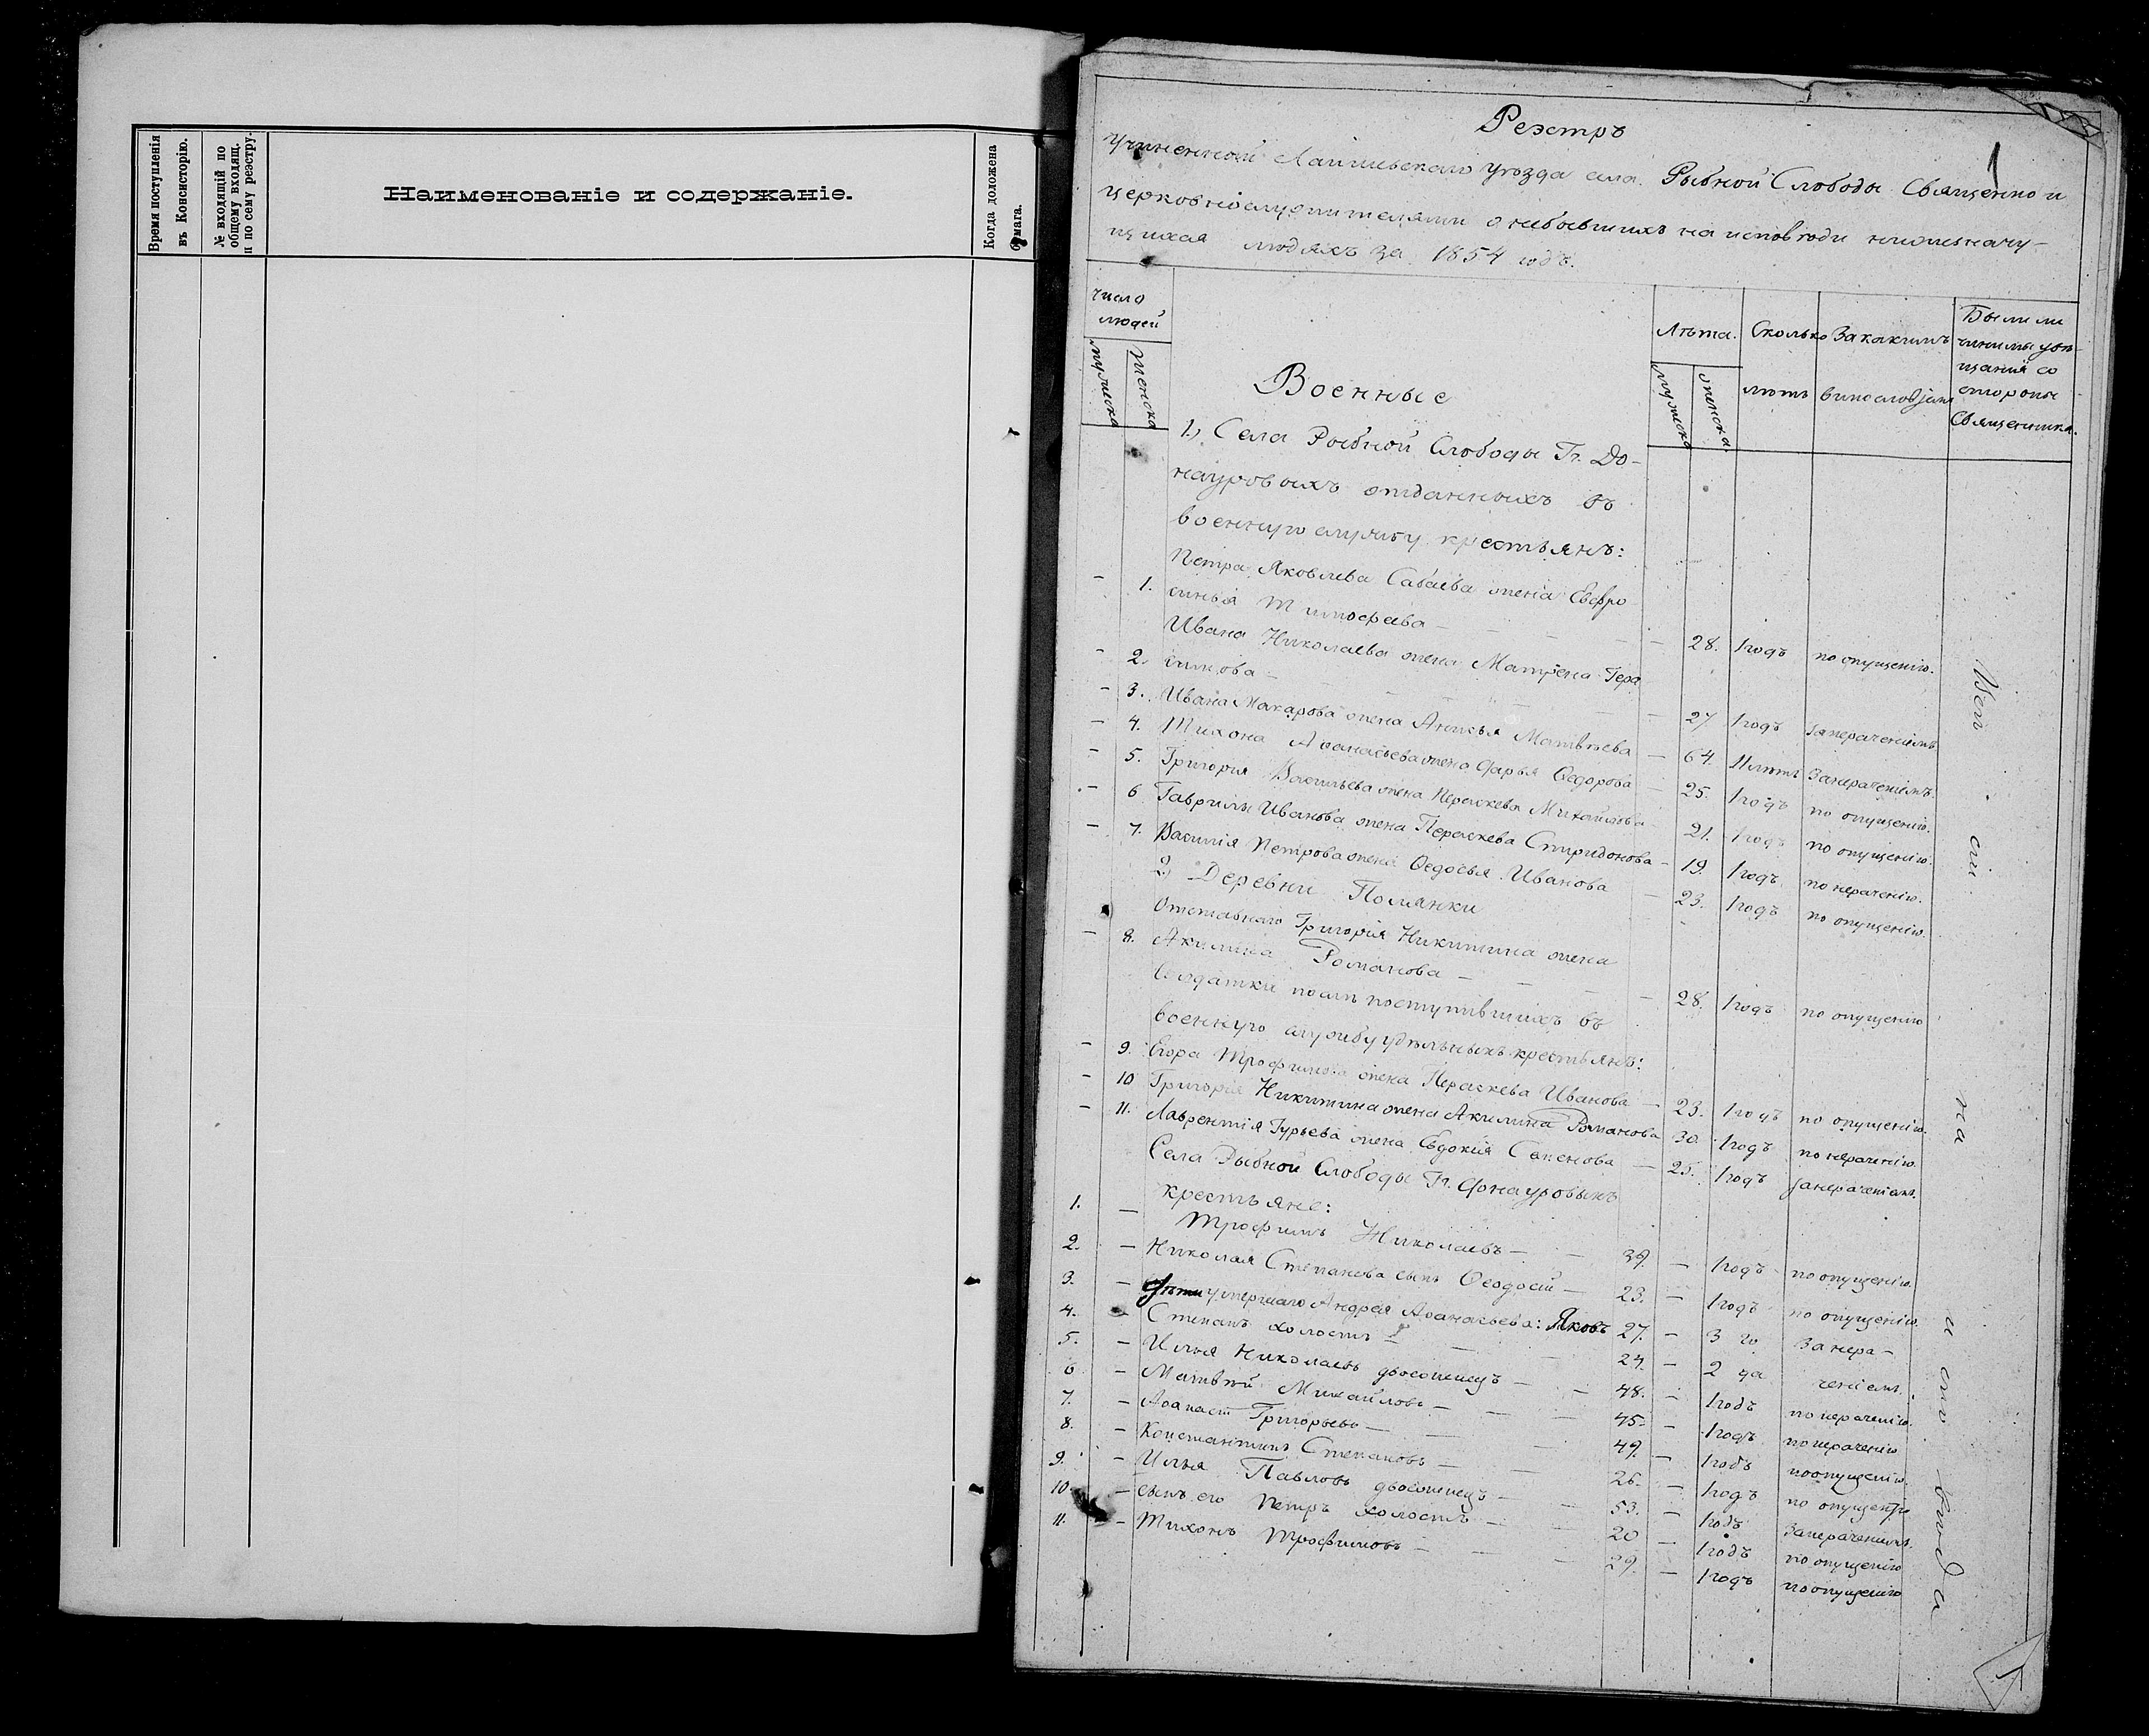 Время поступленія
въ Консисторію.
№ входящій по
общему входящ.
и по сему реэстру.
Наименованіе и содержаніе.
Когда доложена
бумага.
1
Реэстръ
Учиненной Лаишевскаго уѣзда села Рыбной Слободы Священно и
церковнослужителями о небывшихъ на исповѣди нижезначу-
щихся людяхъ за 1854 годъ.
Число
людей
мужеска
женска
Военные
Лѣта.
мужеска
женска
Сколько
лѣтъ
За какимъ
винословіемъ
Были ли
чинимы увѣ-
щанія со
стороны
Священника.
1, Села Рыбной Слободы Гг. До-
науровыхъ отданныхъ въ
военную службу крестьянъ:
Петра Яковлева Сабаева жена Евфро
– 1. синья Тимофеева – – 28. 1 годъ по опущенію.
Ивана Николаева жена Матрена Гера
– 2. симова – – 27 1 годъ за нераченіемъ
– 3. Ивана Макарова жена Анисья Матвѣева – 64. 11 лѣтъ За нераченіемъ
– 4. Тихона Аѳанасьева жена Дарья Ѳедорова – 25. 1 годъ по опущенію.
– 5. Григорія Васильева жена Пераскева Михайлова – 21. 1 годъ по опущенію.
– 6 Гаврилы Иванова жена Пераскева Спиридонова – 19. 1 годъ по нераченію.
– 7. Василія Петрова жена Ѳедосья Иванова – 23. 1 годъ по опущенію.
2) Деревни Полянки
Отставнаго Григорія Никитина жена
– 8. Акилина Романова – – 28. 1 годъ по опущенію
Солдатки послѣ поступившихъ въ
военную службу удѣльныхъ крестьянъ:
– 9. Егора Трофимова жена Пераскева Иванова – 23. 1 годъ по опущенію.
– 10 Григорія Никитина жена Акилина Романова 30. 1 годъ по нераченію.
– 11. Лаврентія Гурьева жена Евдокія Семенова – 25. 1 годъ за нераченіемъ.
Села Рыбной Слободы Гг. Донауровыхъ
крестьяне:
1. – Трофимъ Николаевъ – – 39. – 1 годъ по опущенію.
2. – Николая Степанова сынъ Ѳеодосій – 23. – 1 годъ по опущенію.
3. – Дѣти умершаго Андрея Аѳанасьева: Яковъ 27. – 3 го За нера –
4. – Степанъ холостъ – – 24. – 2 да ченіемъ.
5. – Илья Николаевъ двоеженецъ – – 48. – 1 годъ по нераченію.
6 – Матвѣй Михайловъ – – 45. – 1 годъ по нераченію
7. – Аѳанасій Григорьевъ – – 49. – 1 годъ по опущенію.
8. – Константинъ Степановъ – – 26. – 1 годъ по опущенію
9. – Илья Павловъ двоеженецъ – – 53. – 1 годъ За нераченіемъ.
10 – сынъ его Петръ холостъ – – 20 – 1 годъ по опущенію
11. – Тихонъ Трофимовъ – – 29. – 1 годъ по опущенію
Всѣ сіи на
1